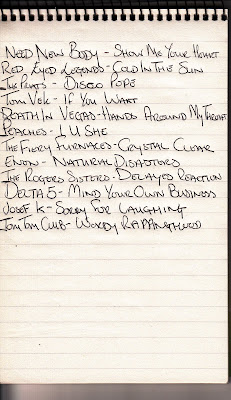 Need New Body - Show Me Your Heart
Red Eyed Legends - Cold In The Sun
The Rants - Disco Pope
Tom Vek - If You Want
Death In Vegas - Hands Around My Throat
Peaches - I U She
The Fiery Furnaces - Crystal Clear
Enon - Natural Disasters
The Rogers Sisters - Delayed Reaction
Delta 5 - Mind Your Own Business
Josef K - Sorry For Laughing
Tom Tom Club - Wordy Rappinghood